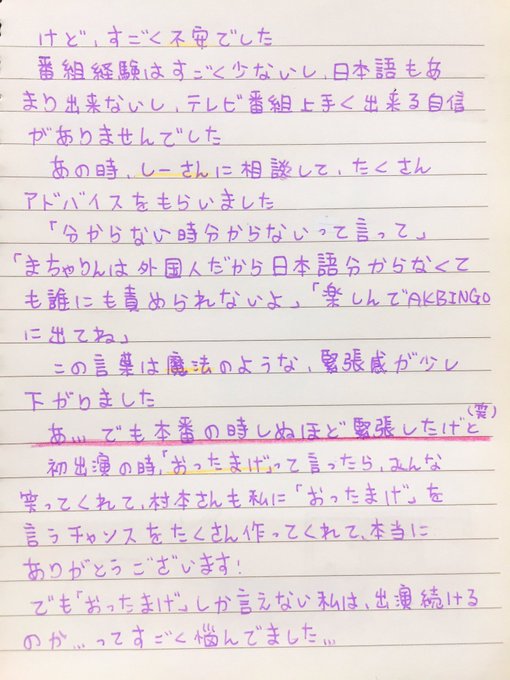 けど、すごく不安でした
番組経験はすごく少ないし、日本語もあ
まり出来ないし、テレビ番組上手く出来る自信
がありませんでした
あの時、しーさんに相談して、たくさん
アドバイスをもらいました
「分からない時分からないって言って」
「まちゃりんは外国人だから日本語分からなくて
も誰にも責められないよ」「楽しんでAKBINGO
に出てね」
この言葉は魔法のような、緊張感が少し
下がりました
あ... でも本番の時しぬほど緊張したけど(笑)
初出演の時、「おったまげ」って言ったら、みんな
笑ってくれて、村本さんも私に「おったまげ」を
言うチャンスをたくさん作ってくれて、本当に
ありがとうございます!
でも「おったまげ」しか言えない私は、出演続ける
のか...ってすごく悩んでました...